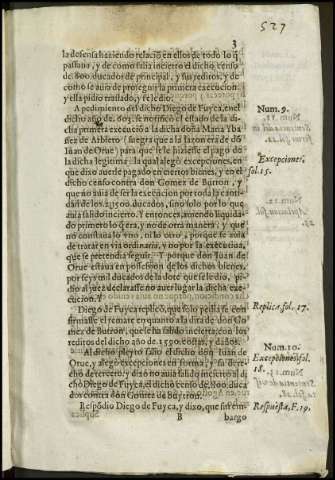 527
3
la defensa haziendo relaciō en ellos de todo lo q̃
passaua, y de como salia incierto el dicho censo
de 800. ducados de principal, y sus reditos, y de
como se auia de proseguir la primera execucion
y ella pidio traslado, y se le dio.
A pedimiento del dicho Diego de Fuyca, en el
dicho año de 603. se notificò el estado de la di-
cha primera execuciō a la dicha doña Maria Yba
ñez de Arbieto (suegra que a la sazon era de dō
Iuan de Orue) para que se le hiziesse el pago de
la dicha legitima: la qual alegò excepciones, en
que dixo auerse pagado en ciertos bienes, y en el
dicho censo contra don Gomez de Butron, y
que no auia de ser la execucion por toda la canti-
dad de los 2U500 ducados, sino solo por lo que
auia salido incierto. Y entonces, auiendo liquida-
do primero lo q̃ era, y no de otra manera; y que
no constaua lo vno, ni lo otro, y porque se auia
de tratar en via ordinaria, y no por la executiua,
que se pretendia seguir. Y porque don Iuan de
Orue estaua en possession de los dichos bienes,
por seys mil ducados de la dote que se le dio, pi-
dio al juez declarasse no auer lugar la dicha exe-
cucion.
Diego de Fuyca replicò, que solo pedia se con
firmasse el remate en quinto a la dita de don Go-
mez de Butron, que le ha salido incierta, con los
reditos del dicho año de 1590. costas, y daños.
Al dicho pleyto salio el dicho don Iuan de
Orue, y alegò excepciones en forma, y su dere-
cho de tercero, y dixo no auia salido incierto al di
chó Diego de Fuyca, el dicho censo de 800. duca
dos contra don Gomez de Buytron.
Respōdio Diego de Fuyca, y dixo, que sin em-
B bargo
Num. 9.
Excepciones,
fol. 15.
Replica, fol. 17.
Num. 10.
Excepciones, fol.
18.
Respuesta, F. 19.